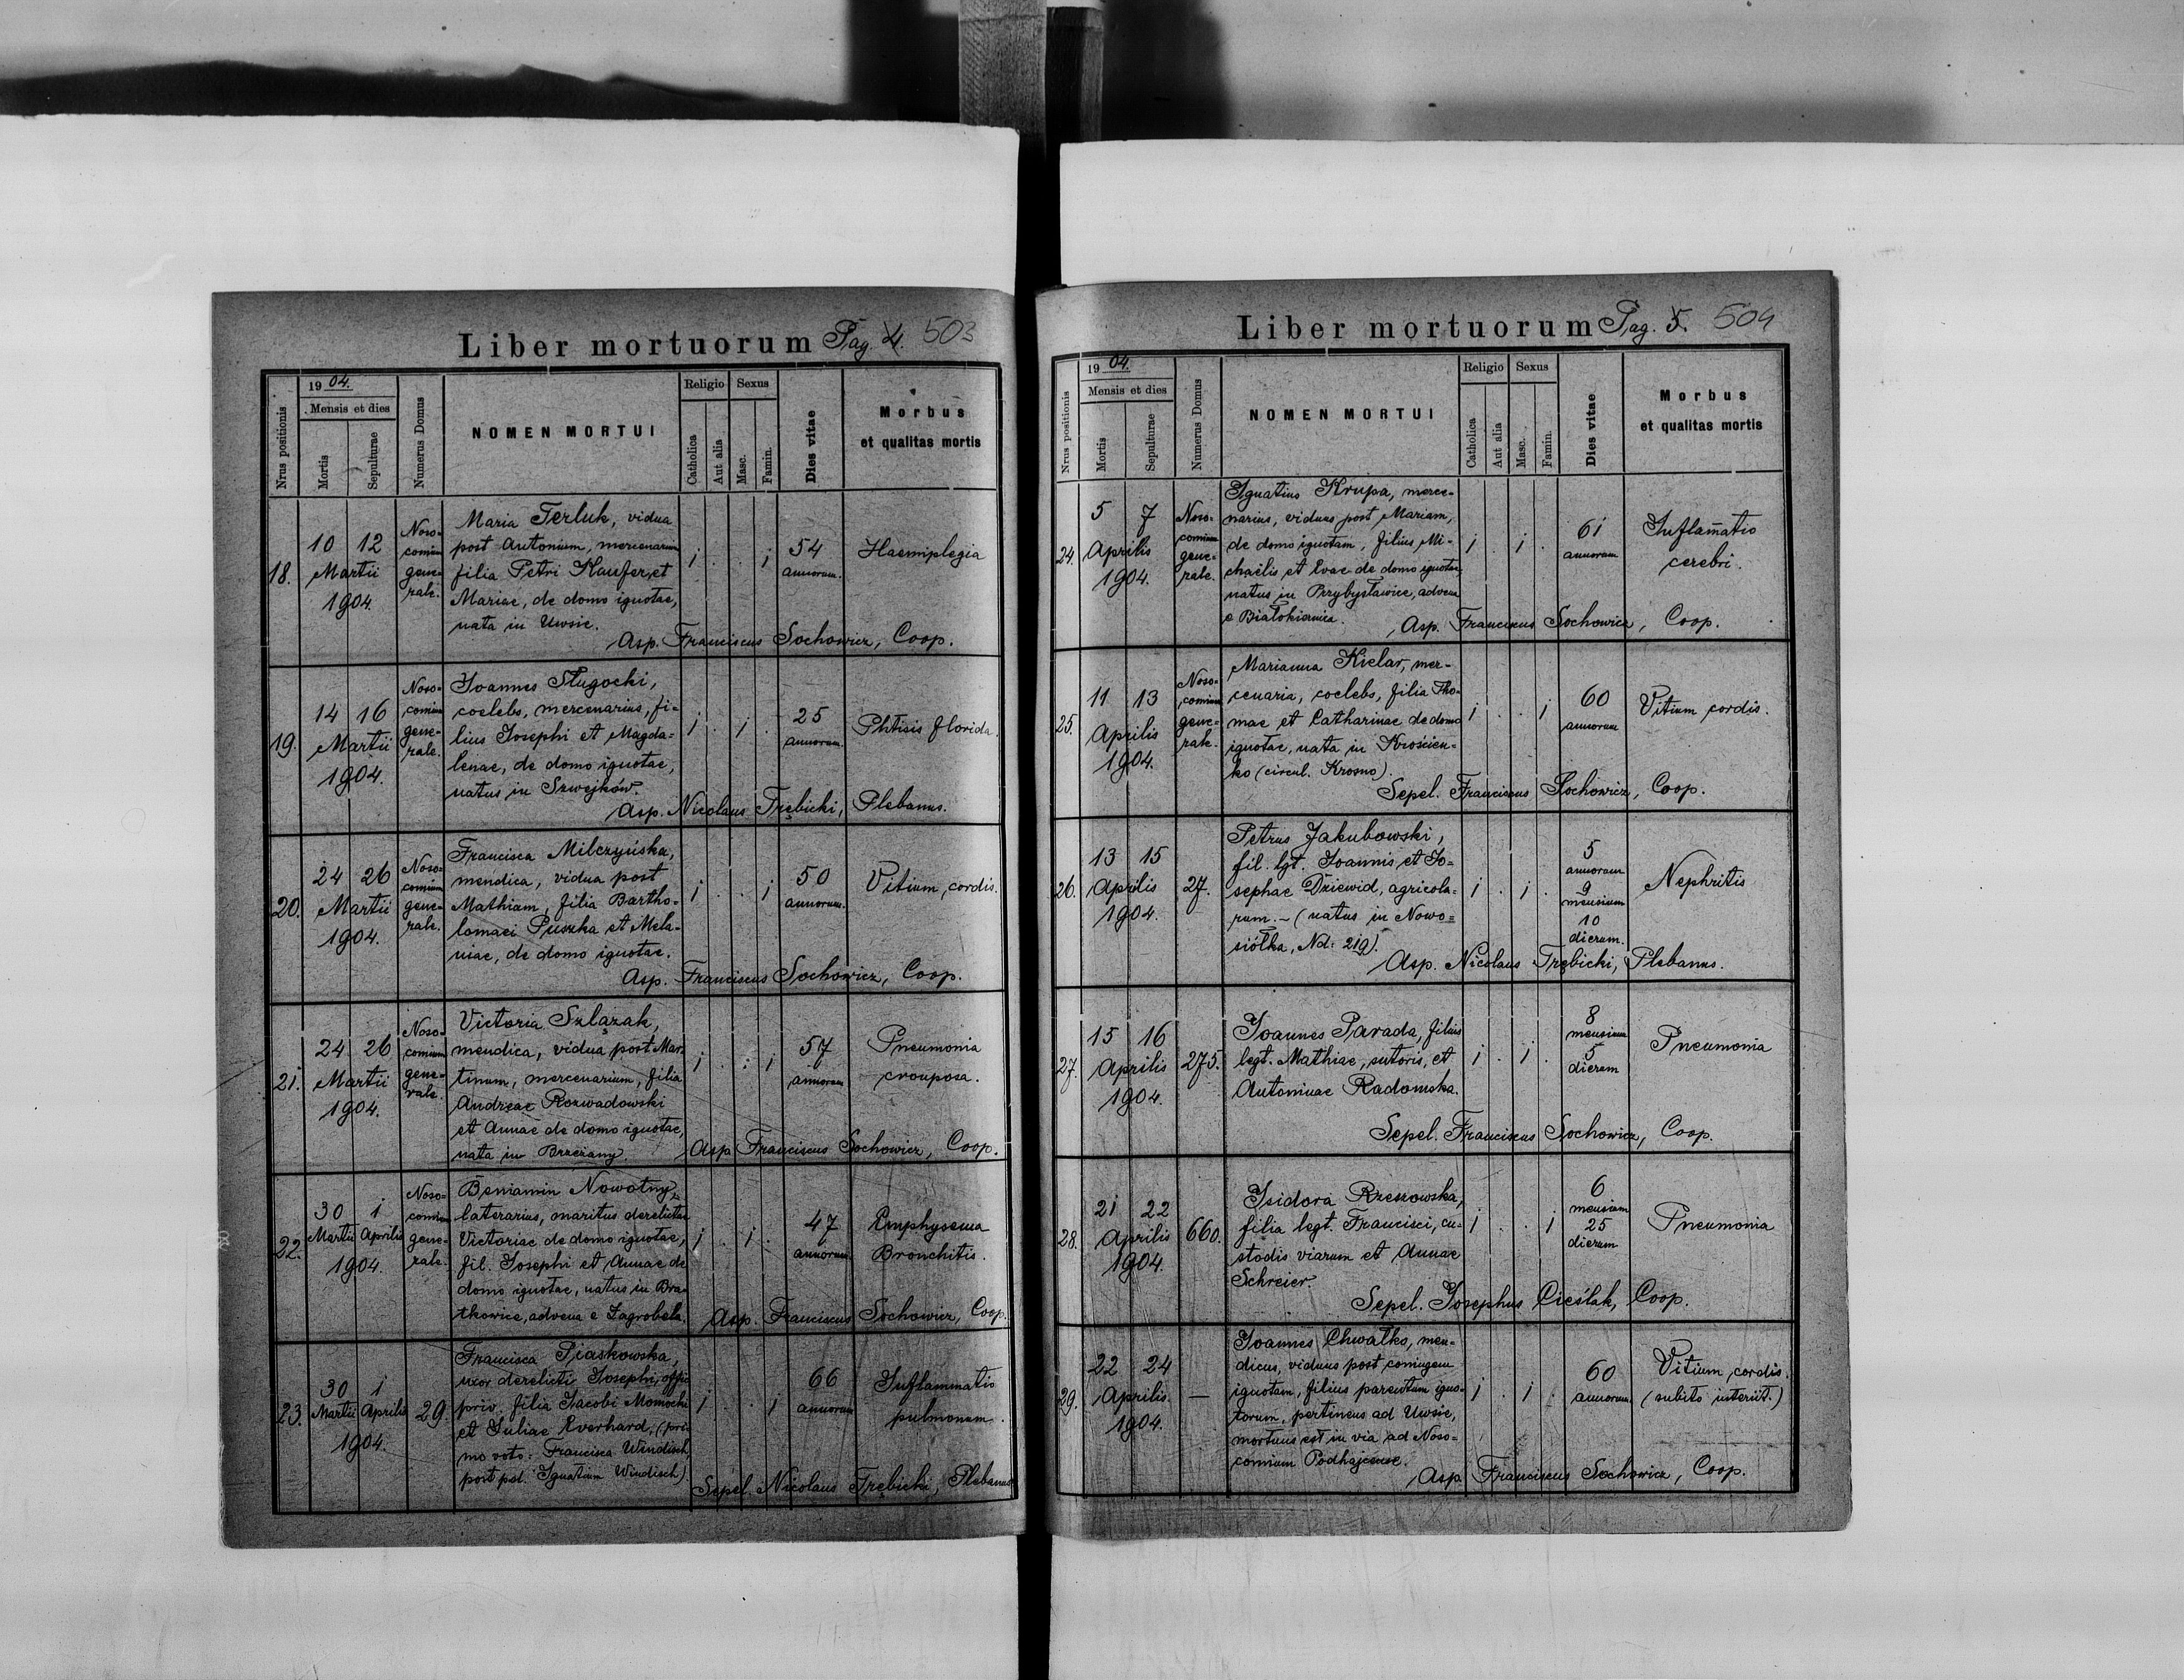 Liber mortuorum Pag. 4. 503
1904.
Mensis et dies
Nrus positionis
Mortis
Sepulturae
Numerus Domus
NOMEN MORTUI
Religio
Catholica
Aut alia
Sexus
Masc.
Famin.
Dies vitae
Morbus
et qualitas mortis
18.
10 12
Martii
1904.
Noso-
comium
gene-
rale.
Maria Terluk, vidua
post Antonium, mercenarium
filia Petri Kaufer, et
Mariae, de domo ignotae,
nata in Uwsie.
1 . . 1
54
annorum.
Haemiplegia
Asp. Franciscus Sochowicz, Coop.
19.
14 16
Martii
1904.
Noso-
comium
gene-
rale.
Joannes Sługocki,
coelebs, mercenarius, fi-
lius Josephi et Magda-
lenae, de domo ignotae,
natus in Szwejków.
1 . 1 .
25
annorum.
Phtisis florida.
Asp. Nicolaus Trębicki, Plebanus.
20.
24 26
Martii
1904.
Noso-
comium
gene-
rale.
Francisca Milczyńska,
mendica, vidua post
Mathiam, filia Bartho-
lomaei Puszka et Mela-
niae, de domo ignotae.
1 . . 1
50
annorum.
Vitium cordis.
Asp. Franciscus Sochowicz, Coop.
21.
24 26
Martii
1904.
Noso-
comium
gene-
rale.
Victoria Szlązak,
mendica, vidua post Mar-
tinum, mercenarium, filia
Andreae Rozwadowski
et Annae de domo ignotae,
nata in Brzeżany.
1 . . 1
57
annorum
Pneumonia
crouposa.
Asp. Franciscus Sochowicz, Coop.
22.
30 1
Martii Aprilis
1904.
Noso-
comium
gene-
rale.
Beniamin Nowotny,
laterarius, maritus derelictae
Victoriae de domo ignotae,
fil. Josephi et Annae de
domo ignotae, natus in Bra-
tkowice, advena e Zagrobela.
1 . 1 .
47
annorum
Emphysema
Bronchitis.
Asp. Franciscus Sochowicz, Coop.
23.
30 1
Martii Aprilis
1904.
29.
Francisca Piaskowska,
uxor derelicti Josephi, offic.
priv. filia Jacobi Momocki
et Juliae Everhard, (pri-
mo voto: Francisca Windisch,
post pd. Ignatium Windisch).
1 . . 1
66
annorum
Inflammatio
pulmonum.
Sepel. Nicolaus Trębicki, Plebanus
Liber mortuorum Pag. 5. 504
1904.
Mensis et dies
Nrus positionis
Mortis
Sepulturae
Numerus Domus
NOMEN MORTUI
Religio
Catholica
Aut alia
Sexus
Masc.
Famin.
Dies vitae
Morbus
et qualitas mortis
24.
5 7
Aprilis
1904.
Noso-
comium
gene-
rale.
Ignatius Krupa, merce-
narius, viduus post Mariam,
de domo ignotam, filius Mi-
chaëlis et Evae de domo ignotae,
natus in Przybysławice, advena
e Białokiernica.
1 . 1 .
61
annorum
Inflam̄atio
cerebri.
Asp. Franciscus Sochowicz, Coop.
25.
11 13
Aprilis
1904.
Noso-
comium
gene-
rale.
Marianna Kielar, mer-
cenaria, coelebs, filia Tho-
mae et Catharinae de domo
ignotae, nata in Krościen-
ko (circul. Krosno).
1 . . 1
60
annorum
Vitium cordis.
Sepel. Franciscus Sochowicz, Coop.
26.
13 15
Aprilis
1904.
27.
Petrus Jakubowski,
fil. lgt. Joannis et Jo-
sephae Dziewid, agricola-
rum. – (natus in Nowo-
siółka, Nd: 219).
1 . 1 .
5
annorum
9
mensium
10
dierum.
Nephritis
Asp. Nicolaus Trębicki, Plebanus.
27.
15 16
Aprilis
1904.
275.
Joannes Parada, filius
legt. Mathiae, sutoris, et
Antoninae Radomska.
1 . 1 .
8
mensium
5
dierum
Pneumonia
Sepel. Franciscus Sochowicz, Coop.
28.
21 22
Aprilis
1904.
660.
Isidora Rzeszowska,
filia legt. Francisci, cu-
stodis viarum et Annae
Schreier.
1 . . 1
6
mensium
25
dierum
Pneumonia
Sepel. Josephus Cieślak, Coop.
29.
22 24
Aprilis
1904.
—
Joannes Chwałko, men-
dicus, viduus post coniugem
ignotam, filius parentum igno-
torum, pertinens ad Uwsie,
mortuus est in via ad Noso-
comium Podhajcense.
1 . 1 .
60
annorum
Vitium cordis.
(subito interiit.)
Asp. Franciscus Sochowicz, Coop.